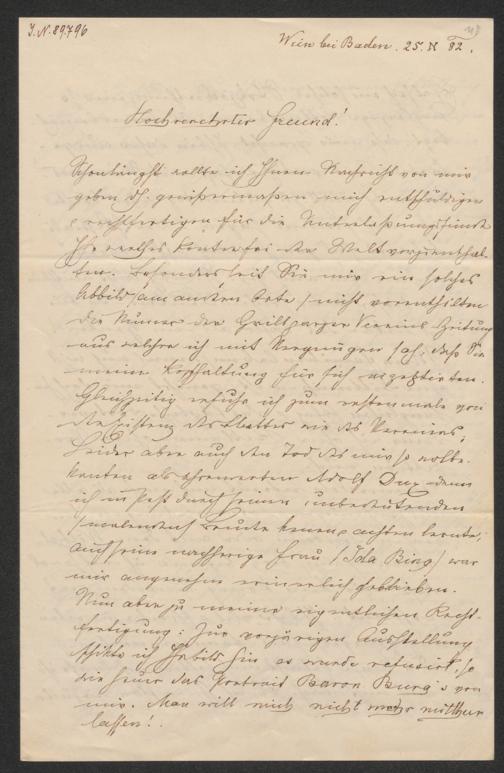 J.N. 89796
Wien bei Baden. 25. IX 82.
Hochverehrter Freund!
Schonlängst sollte ich Ihnen Nachricht von mir
geben dh. gewißermaßen mich entschuldigen
rechtfertigen für die Unterlaßungssünde
Ihr werthes Konterfei der Welt vorzuenthal-
ten. Besonders seit Sie mir ein solches
Abbild (am andern Orte) nicht vorenthielten
die Numer der Grillparzer Vereins Zeitung
aus welcher ich mit Vergnügen sah, daß Sie
meine Kopfhaltung für sich aczeptirten.
Gleichzeitig erfuhr ich zum erstenmale von
der Existenz des Blattes wie des Vereines,
Leider aber auch den Tod des mir so wolbe-
kanten als ehrenwerten Adolf Dux denn
ich in Pest durch seinen unbedeutenden
Leute kenen & achten lernte;
auch seine nachherige Frau (Ida Bing) war
mir angenehm erinerlich geblieben.
Nun aber zu meiner eigentlichen Recht-
fertigung: Zur vorjärigen Ausstellung
schikte ich Ihr Bild hin es wurde refusirt, so
wie heuer das Portrait Baron Burg's von
mir. Man will mich nicht mehr mitthun
lassen!